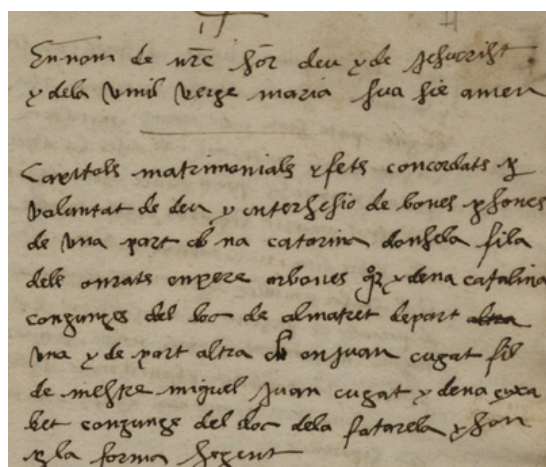 En nom de nr̄e Sōr deu y de Jhucrist
y dela Umil Verge maria sua sie amen
Capitols matrimonials y fets concordats p
Voluntat de deu y intersesio de bones psones
de una part ab na catarina donsela fila
dels onrats en pere arbones q̊ y dena catalina
conjunges del loc de almatret de part altra
una y de part altra ab en juan cugat fil
de mestre miquel Juan cugat y dena
bet conjunge del loc dela fatarela y son
p la forma seguent